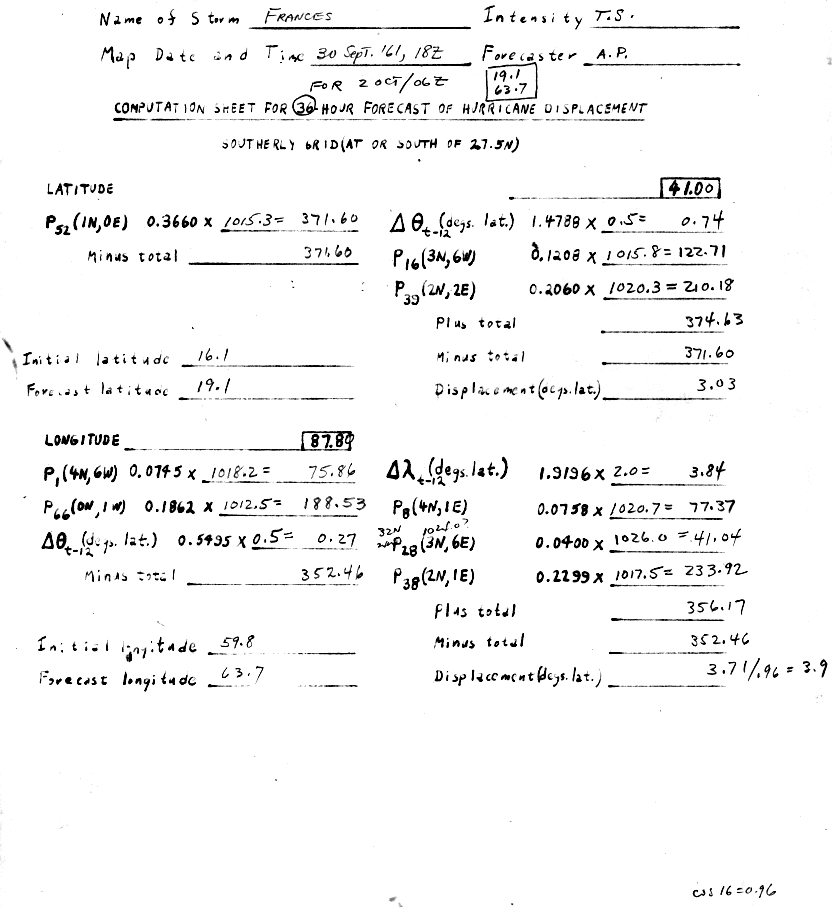 Name of Storm FRANCES Intensity T.S.
Map Date and Time 30 SEPT. '61, 18Z Forecaster A.P.
FOR 2 OCT/06Z 19.1
63.7
COMPUTATION SHEET FOR 36-HOUR FORECAST OF HURRICANE DISPLACEMENT
SOUTHERLY GRID (AT OR SOUTH OF 27.5N)
LATITUDE 41.00
P52 (1N, 0E) 0.3660 x 1015.3 = 371.60 Δθt-12 (degs. lat.) 1.4788 x 0.5 = 0.74
Minus total 371.60 P16 (3N, 6W) 0.1208 x 1015.8 = 122.71
P39 (2N, 2E) 0.2060 x 1020.3 = 210.18
Plus total 374.63
Initial latitude 16.1 Minus total 371.60
Forecast latitude 19.1 Displacement (degs. lat.) 3.03
LONGITUDE 87.89
P1 (4N, 6W) 0.0745 x 1018.2 = 75.86 Δλt-12 (degs. lat.) 1.9196 x 2.0 = 3.84
P66 (0N, 1W) 0.1862 x 1012.5 = 188.53 P8 (4N, 1E) 0.0758 x 1020.7 = 77.37
32N
Δθt-12 (degs. lat.) 0.5495 x 0.5 = 0.27 P28 (3N, 6E) 0.0400 x 1026.0 = 41.04
Minus total 352.46 P38 (2N, 1E) 0.2299 x 1017.5 = 233.92
Plus total 356.17
Initial longitude 59.8 Minus total 352.46
Forecast longitude 63.7 Displacement (degs. lat.) 3.71/.96 = 3.9
cos 16 = 0.96